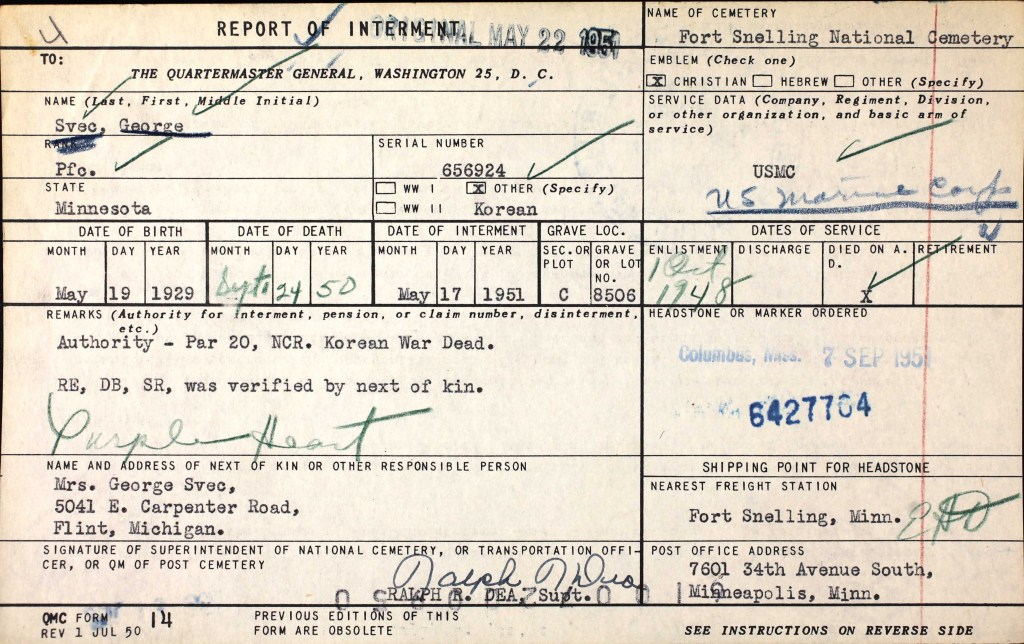 REPORT OF INTERMENT
ORIGINAL MAY 22 1951
TO:
THE QUARTERMASTER GENERAL, WASHINGTON 25, D. C.
NAME OF CEMETERY
Fort Snelling National Cemetery
EMBLEM (Check one)
X CHRISTIAN HEBREW OTHER (Specify)
NAME (Last, First, Middle Initial)
Svec, George
SERVICE DATA (Company, Regiment, Division, or other organization, and basic arm of service)
USMC
US Marine Corps
RANK
Pfc.
SERIAL NUMBER
656924
STATE
Minnesota
WW I X OTHER (Specify)
WW II Korean
DATE OF BIRTH
MONTH DAY YEAR
May 19 1929
DATE OF DEATH
MONTH DAY YEAR
Sept. 24 50
DATE OF INTERMENT
MONTH DAY YEAR
May 17 1951
GRAVE LOC.
SEC. OR PLOT GRAVE OR LOT NO.
C 8506
DATES OF SERVICE
ENLISTMENT DISCHARGE DIED ON A. D. RETIREMENT
1 Oct 1948 X
REMARKS (Authority for interment, pension, or claim number, disinterment, etc.)
Authority - Par 20, NCR. Korean War Dead.
RE, DB, SR, was verified by next of kin.
Purple Heart
HEADSTONE OR MARKER ORDERED
Columbus, Miss. 7 SEP 1951
6427764
NAME AND ADDRESS OF NEXT OF KIN OR OTHER RESPONSIBLE PERSON
Mrs. George Svec,
5041 E. Carpenter Road,
Flint, Michigan.
SHIPPING POINT FOR HEADSTONE
NEAREST FREIGHT STATION
Fort Snelling, Minn.
SIGNATURE OF SUPERINTENDENT OF NATIONAL CEMETERY, OR TRANSPORTATION OFFI-
CER, OR QM OF POST CEMETERY
RALPH R. DEA, Supt.
POST OFFICE ADDRESS
7601 34th Avenue South,
Minneapolis, Minn.
QMC FORM 14
REV 1 JUL 50
PREVIOUS EDITIONS OF THIS
FORM ARE OBSOLETE
SEE INSTRUCTIONS ON REVERSE SIDE